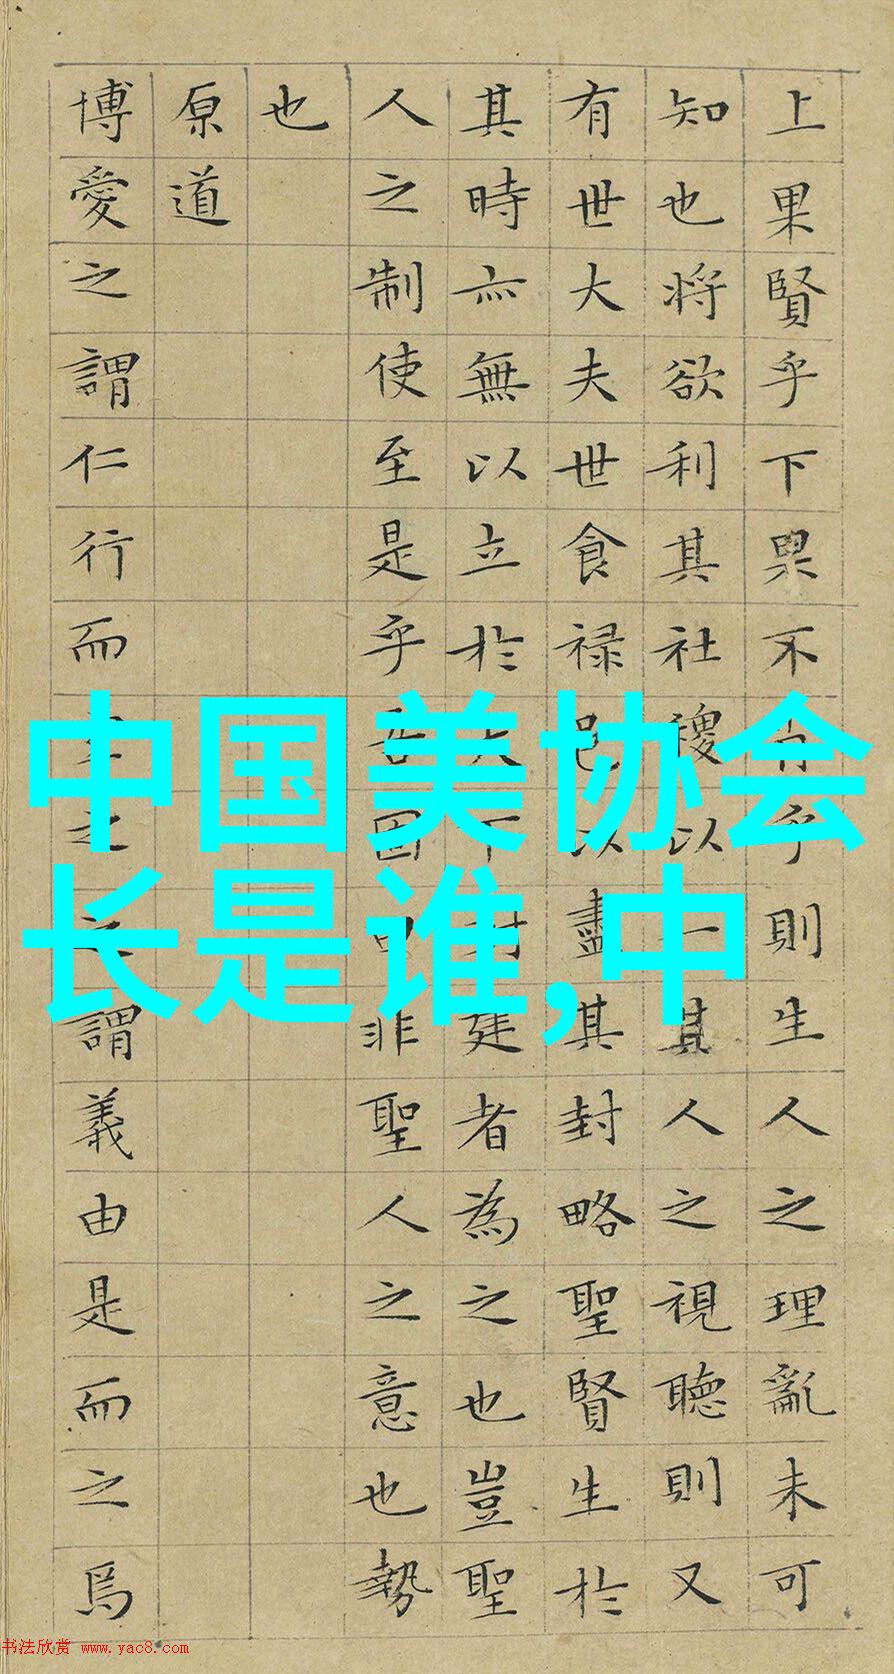 中国美协会
长是谁,中
上果賢乎下果不有乎則生人之理亂未可
知也將欲利其社稷以一其人之視聽則又
有世大夫世食祿邑以盡其封略聖賢生於
其時亦無以立於天下封建者為之也豈聖
人之制使至是乎吾固曰非聖人之意也勢
也
原道
博愛之謂仁行而之之謂義由是而之焉
书法欣赏 www.yac8.com